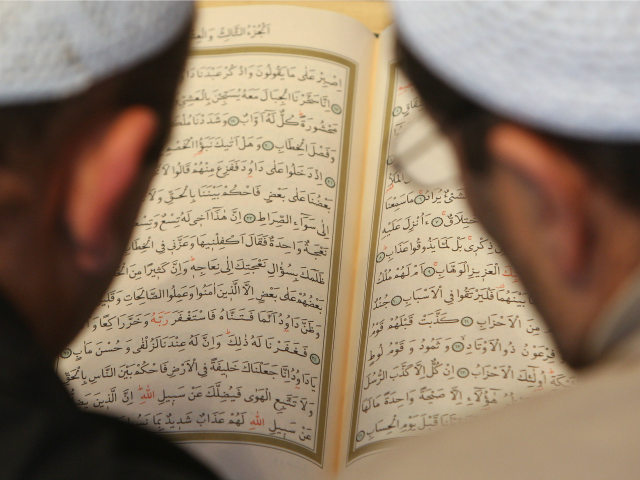 شَيْءٌ يُرَادُ مَا سَمِعْنَا
ءَاُنْزِلَ عَلَيْهِ
ذِكْرِي بَلْ لَمَّا يَذُوقُوا عَذَابِ
الْعَزِيزِ الْوَهَّابِ اَمْ لَهُمْ مُلْكُ
بَيْنَهُمَا فَلْيَرْتَقُوا فِي الْاَسْبَابِ جُنْدٌ
مِنَ الْاَحْزَابِ كَذَّبَتْ قَبْلَهُمْ قَوْمُ
فِرْعَوْنُ ذُو الْاَوْتَادِ وَثَمُودُ وَقَوْمُ لُوطٍ
اُولٰئِكَ الْاَحْزَابُ اِنْ كُلٌّ اِلَّا كَذَّبَ الرُّسُلَ
هٰٓؤُلَاءِ اِلَّا صَيْحَةً وَاحِدَةً مَا لَهَا
قَبْلَ يَوْمِ الْحِسَابِ
اَلْجُزْءُ الثَّالِثُ
اِصْبِرْ عَلٰى مَا يَقُولُونَ وَاذْكُرْ عَبْدَنَا
اِنَّا سَخَّرْنَا الْجِبَالَ مَعَهُ يُسَبِّحْنَ بِالْعَشِيِّ
مَحْشُورَةً كُلٌّ لَهُ اَوَّابٌ وَشَدَدْنَا
وَفَصْلَ الْخِطَابِ وَهَلْ اَتٰيكَ نَبَؤُا الْخَصْمِ
اِذْ دَخَلُوا عَلٰى دَاوُدَ فَفَزِعَ مِنْهُمْ قَالُوا
بَعْضُنَا عَلٰى بَعْضٍ فَاحْكُمْ بَيْنَنَا بِالْحَقِّ وَلَا
اِلٰى سَوَاءِ الصِّرَاطِ اِنَّ هٰذَا اَخِي لَهُ تِسْعٌ
نَعْجَةٌ وَاحِدَةٌ فَقَالَ اَكْفِلْنِيهَا وَعَزَّنِي فِي الْخِطَابِ
ظَلَمَكَ بِسُؤَالِ نَعْجَتِكَ اِلٰى نِعَاجِهِ وَاِنَّ كَثِيرًا مِنَ
بَعْضُهُمْ عَلٰى بَعْضٍ اِلَّا الَّذِينَ اٰمَنُوا وَعَمِلُوا الصَّالِحَاتِ وَقَلِيلٌ
وَظَنَّ دَاوُدُ اَنَّمَا فَتَنَّاهُ فَاسْتَغْفَرَ رَبَّهُ وَخَرَّ رَاكِعًا
فَغَفَرْنَا لَهُ ذٰلِكَ وَاِنَّ لَهُ عِنْدَنَا لَزُلْفٰى وَحُسْنَ مَاٰبٍ
يَا دَاوُدُ اِنَّا جَعَلْنَاكَ خَلِيفَةً فِي الْاَرْضِ فَاحْكُمْ بَيْنَ النَّاسِ بِالْحَقِّ
وَلَا تَتَّبِعِ الْهَوٰى فَيُضِلَّكَ عَنْ سَبِيلِ اللّٰهِ اِنَّ الَّذِينَ
عَنْ سَبِيلِ اللّٰهِ لَهُمْ عَذَابٌ شَدِيدٌ بِمَا